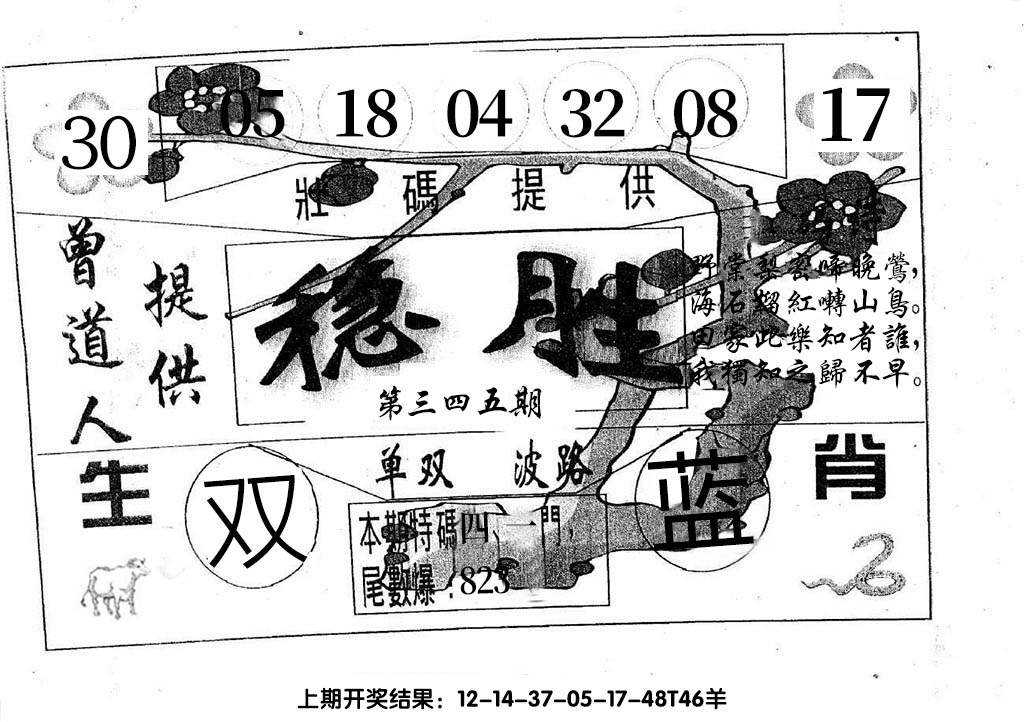 30 05 18 04 32 08 17
壯碼提供
特
曾道人
提供
稳胜
第三四五期
野棠梨密啼晚鶯，
海石榴紅囀山鳥。
田家此樂知者誰，
我獨知之歸不早。
生肖
单双
波路
双
蓝
本期特碼四、一門，
尾數爆：823
上期开奖结果：12-14-37-05-17-48T46羊